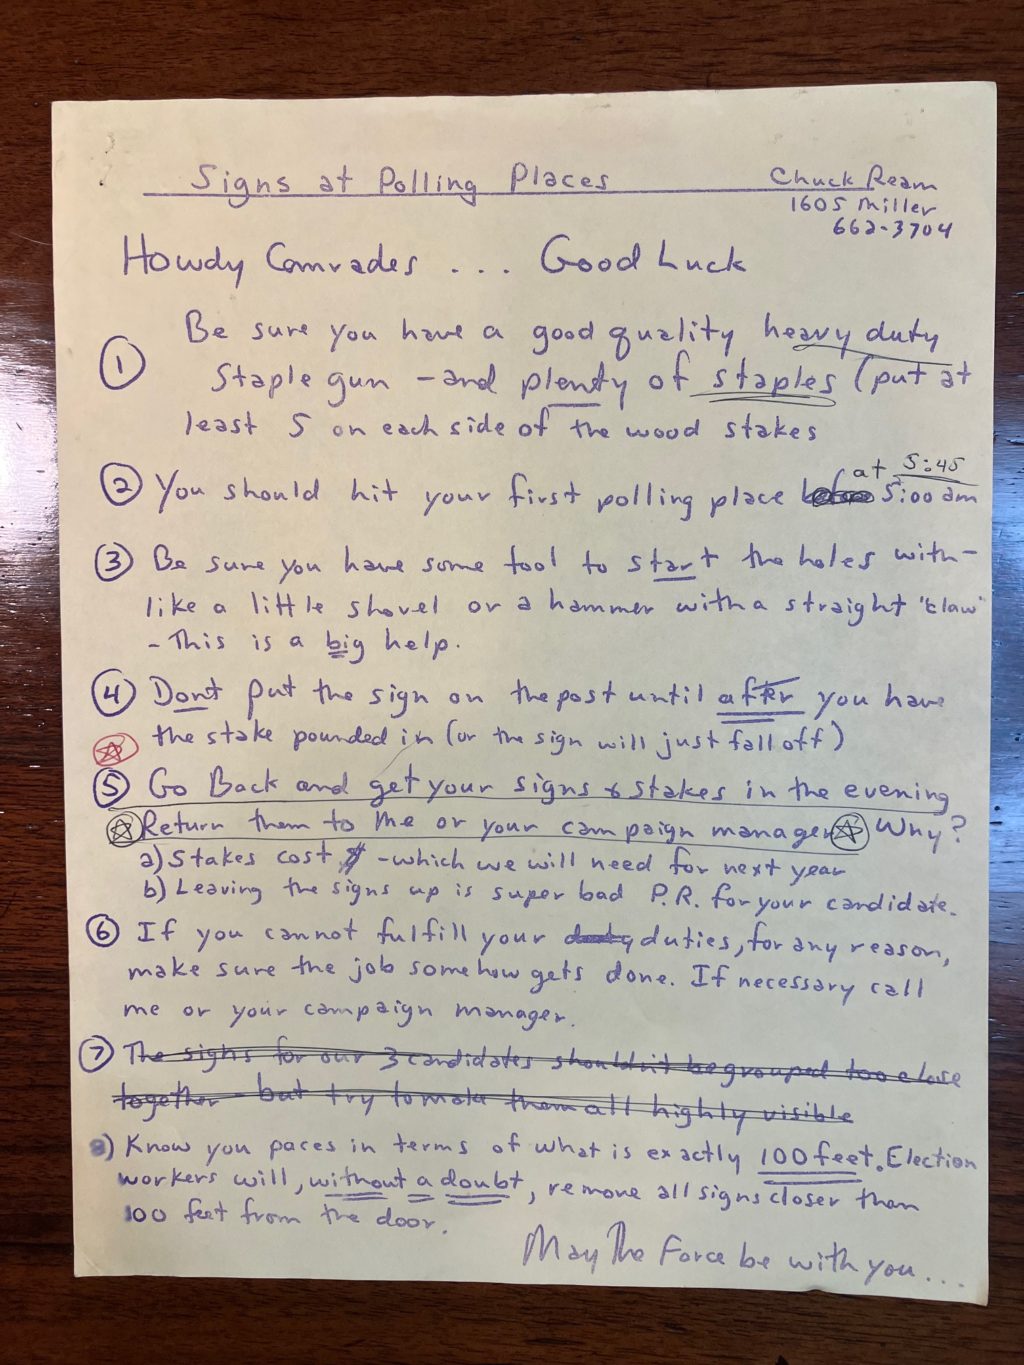 Signs at Polling Places
Chuck Ream
1605 Miller
662-3704
Howdy Comrades ... Good Luck
① Be sure you have a good quality heavy duty
Staple gun - and plenty of staples (put at
least 5 on each side of the wood stakes
② You should hit your first polling place at 5:45 5:00 am
③ Be sure you have some tool to start the holes with-
like a little shovel or a hammer with a straight "claw"
- This is a big help.
④ Dont put the sign on the post until after you have
the stake pounded in (or the sign will just fall off)
⑤ Go Back and get your signs & stakes in the evening
Return them to me or your campaign manager Why?
a) Stakes cost $ - which we will need for next year
b) Leaving the signs up is super bad P.R. for your candidate.
⑥ If you cannot fulfill your duty duties, for any reason,
make sure the job somehow gets done. If necessary call
me or your campaign manager.
⑦ The signs for our 3 candidates shouldn't be grouped too close
together - but try to make them all highly visible
8) Know you paces in terms of what is exactly 100 feet. Election
workers will, without a doubt, remove all signs closer than
100 feet from the door.
May The Force be with you...